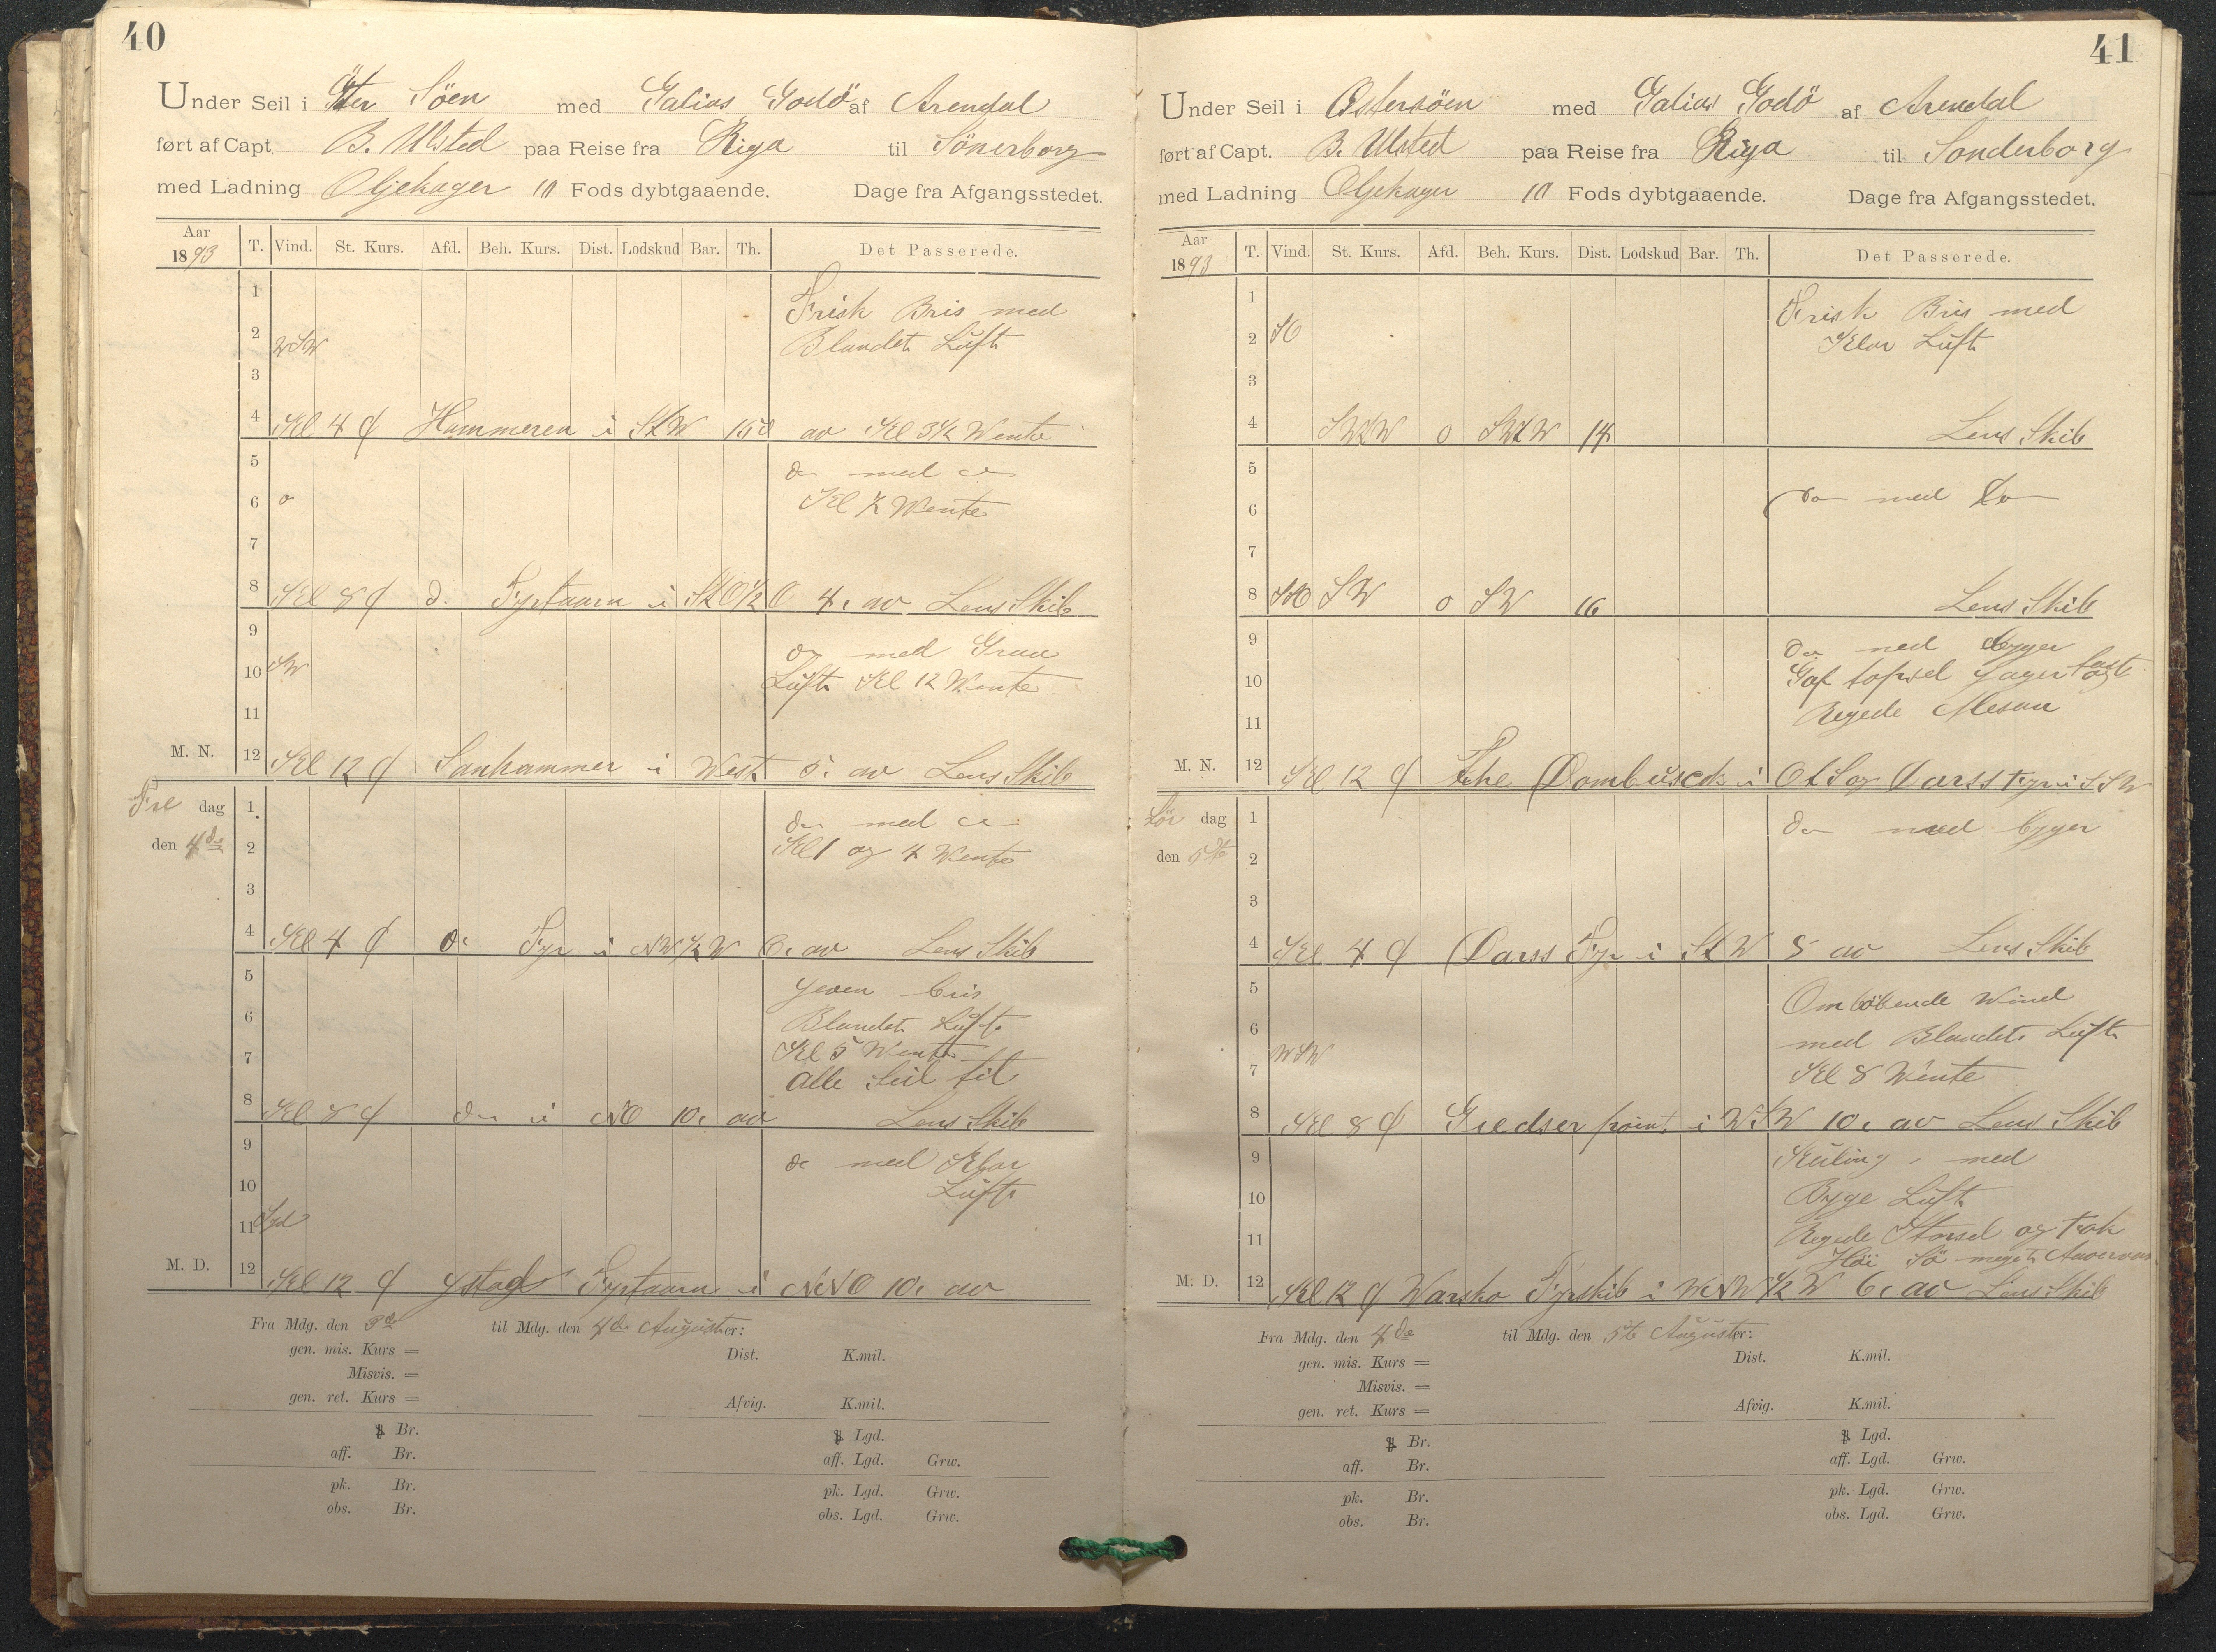 40
Under Seil i Öster Söen med Galias Godö af Arendal
ført af Capt. B. Ulsted paa Reise fra Riga til Sönerborg
med Ladning Oljekager 10 Fods dybtgaaende. Dage fra Afgangsstedet.
Aar 1893 T. Vind. St. Kurs. Afd. Beh. Kurs. Dist. Lodskud Bar. Th. Det Passerede.
1 Frisk Bris med
2 WSW Blandet Luft
3
4 Kl 4 Hammeren i StW av Kl 3½ Wente
5 do med do
6 o Kl ½ Wente
7
8 Kl 8 d. Fyrtaarn i StO½O 4. av Lens Skib
9 do med Graa
10 SW Luft Kl 12 Wente
11
M. N. 12 Kl 12 Sanhammer i West 5. av Lens Skib
Fre dag 1 do med do
den 4de 2 Kl 1 og 4 Wente
3
4 Kl 4 do Fyr i NW½W 6. av Lens Skib
5 jeven bris
6 Blandet Luft
7 Kl 5 Wente
alle Seil til
8 Kl 8 do i NO 10. av Lens Skib
9 do med Klar
10 Luft
11 Syd
M. D. 12 Kl 12 Ystad Fyrtaarn i NNO 10. av
Fra Mdg. den 3de til Mdg. den 4de August er:
gen. mis. Kurs = Dist. K.mil.
Misvis. =
gen. ret. Kurs = Afvig. K.mil.
Br. Lgd.
aff. Br. aff. Lgd. Grw.
pk. Br. pk. Lgd. Grw.
obs. Br. obs. Lgd. Grw.
41
Under Seil i Östersöen med Galias Godö af Arendal
ført af Capt. B. Ulsted paa Reise fra Riga til Sonderborg
med Ladning Oljekager 10 Fods dybtgaaende. Dage fra Afgangsstedet.
Aar 1893 T. Vind. St. Kurs. Afd. Beh. Kurs. Dist. Lodskud Bar. Th. Det Passerede.
1 Frisk Bris med
2 SO Klar Luft
3
4 SWtW o SWtW 14 Lens Skib
5
6 do med do
7
8 SSO SW o SW 16 Lens Skib
9 do med byger
10 Gaf topsel Jager fast
11 Regede Mesan
M. N. 12 Kl 12 Dombusch i OtS og Darss Fyr i SSW
Lör dag 1 do med byger
den 5te 2
3
4 Kl 4 Darss Fyr i StW 5 av Lens Skib
5 Omlöbende Wind
6 med Blandet Luft
7 WSW Kl 8 Wente
8 Kl 8 Giedser point i WSW 10. av Lens Skib
9 Kuling med
10 Byge Luft
11 Regede Storsel og Fok
Höi Sö meget
M. D. 12 Kl 12 Fyrskib i WNW½W 6. av Lens Skib
Fra Mdg. den 4de til Mdg. den 5te August er:
gen. mis. Kurs = Dist. K.mil.
Misvis. =
gen. ret. Kurs = Afvig. K.mil.
Br. Lgd.
aff. Br. aff. Lgd. Grw.
pk. Br. pk. Lgd. Grw.
obs. Br. obs. Lgd. Grw.